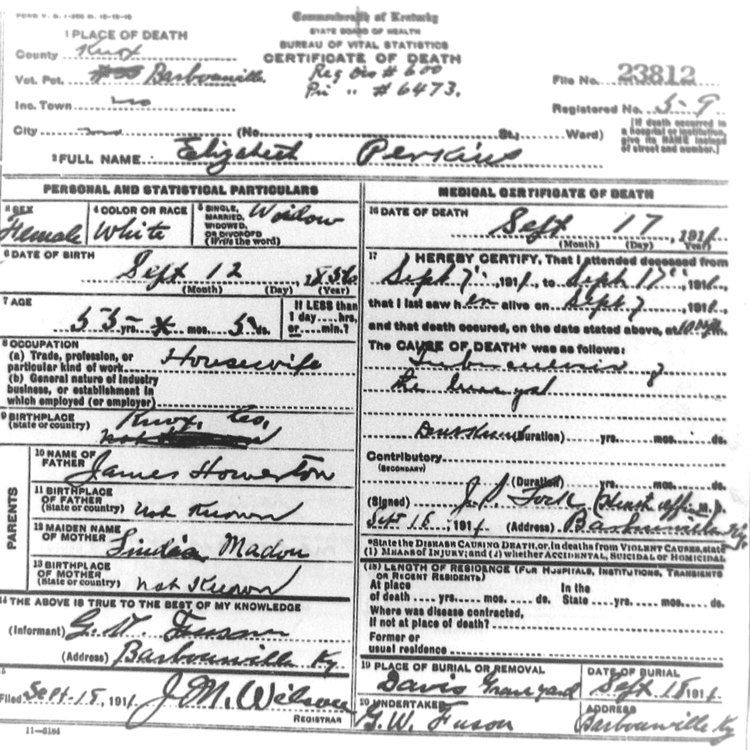 Commonwealth of Kentucky
STATE BOARD OF HEALTH
BUREAU OF VITAL STATISTICS
CERTIFICATE OF DEATH
Reg Dis # 600
Pri " # 6473.
1 PLACE OF DEATH
County Knox
Vot. Pct. Barbourville
Inc. Town no
City no (No. , St.; Ward)
File No. 23812
Registered No. 59
[If death occurred in a hospital or institution, give its NAME instead of street and number.]
2 FULL NAME Elizabeth Perkins
PERSONAL AND STATISTICAL PARTICULARS
3 SEX Female
4 COLOR OR RACE White
5 SINGLE, MARRIED, WIDOWED, OR DIVORCED (Write the word) Widow
6 DATE OF BIRTH
Sept 12 1856
(Month) (Day) (Year)
7 AGE
55 yrs. mos. 5 ds.
If LESS than 1 day hrs. or min.?
8 OCCUPATION
(a) Trade, profession, or particular kind of work Housewife
(b) General nature of industry business, or establishment in which employed (or employer)
9 BIRTHPLACE (State or country) Knox Co.
PARENTS
10 NAME OF FATHER James Howerton
11 BIRTHPLACE OF FATHER (State or country) not Known
12 MAIDEN NAME OF MOTHER Linda Madon
13 BIRTHPLACE OF MOTHER (State or country) not Known
14 THE ABOVE IS TRUE TO THE BEST OF MY KNOWLEDGE
(Informant) G. W. Fuson
(Address) Barbourville Ky
15
Filed Sept 18, 1911 J. M. Wilson
REGISTRAR
11-3184
MEDICAL CERTIFICATE OF DEATH
16 DATE OF DEATH
Sept 17, 1911
(Month) (Day) (Year)
17 I HEREBY CERTIFY, That I attended deceased from
Sept 7", 1911, to Sept 17", 1911,
that I last saw her alive on Sept 7, 1911,
and that death occured, on the date stated above, at
The CAUSE OF DEATH* was as follows:
Tuberculosis of
the lungs
(duration) yrs. mos. ds.
Contributory
(SECONDARY)
(Duration) yrs. mos. ds.
(Signed) M. D.
Sept 18, 1911 (Address) Barbourville Ky
*State the DISEASE CAUSING DEATH, or, in deaths from VIOLENT CAUSES, state (1) MEANS OF INJURY; and (2) whether ACCIDENTAL, SUICIDAL or HOMICIDAL
(18) LENGTH OF RESIDENCE (FOR HOSPITALS, INSTITUTIONS, TRANSIENTS OR RECENT RESIDENTS)
At place of death yrs. mos. ds. In the State yrs. mos. ds.
Where was disease contracted, If not at place of death?
Former or usual residence
19 PLACE OF BURIAL OR REMOVAL
Davis Graveyard
DATE OF BURIAL
Sept 18 1911
20 UNDERTAKER
G. W. Fuson
ADDRESS
Barbourville Ky